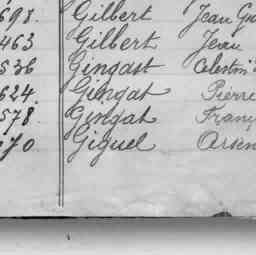 698. Gilbert Jean
463 Gilbert Jean
536 Gingast Célestin
624 Gingat Pierre
578. Gingat Franç
70. Giguel Arsèn